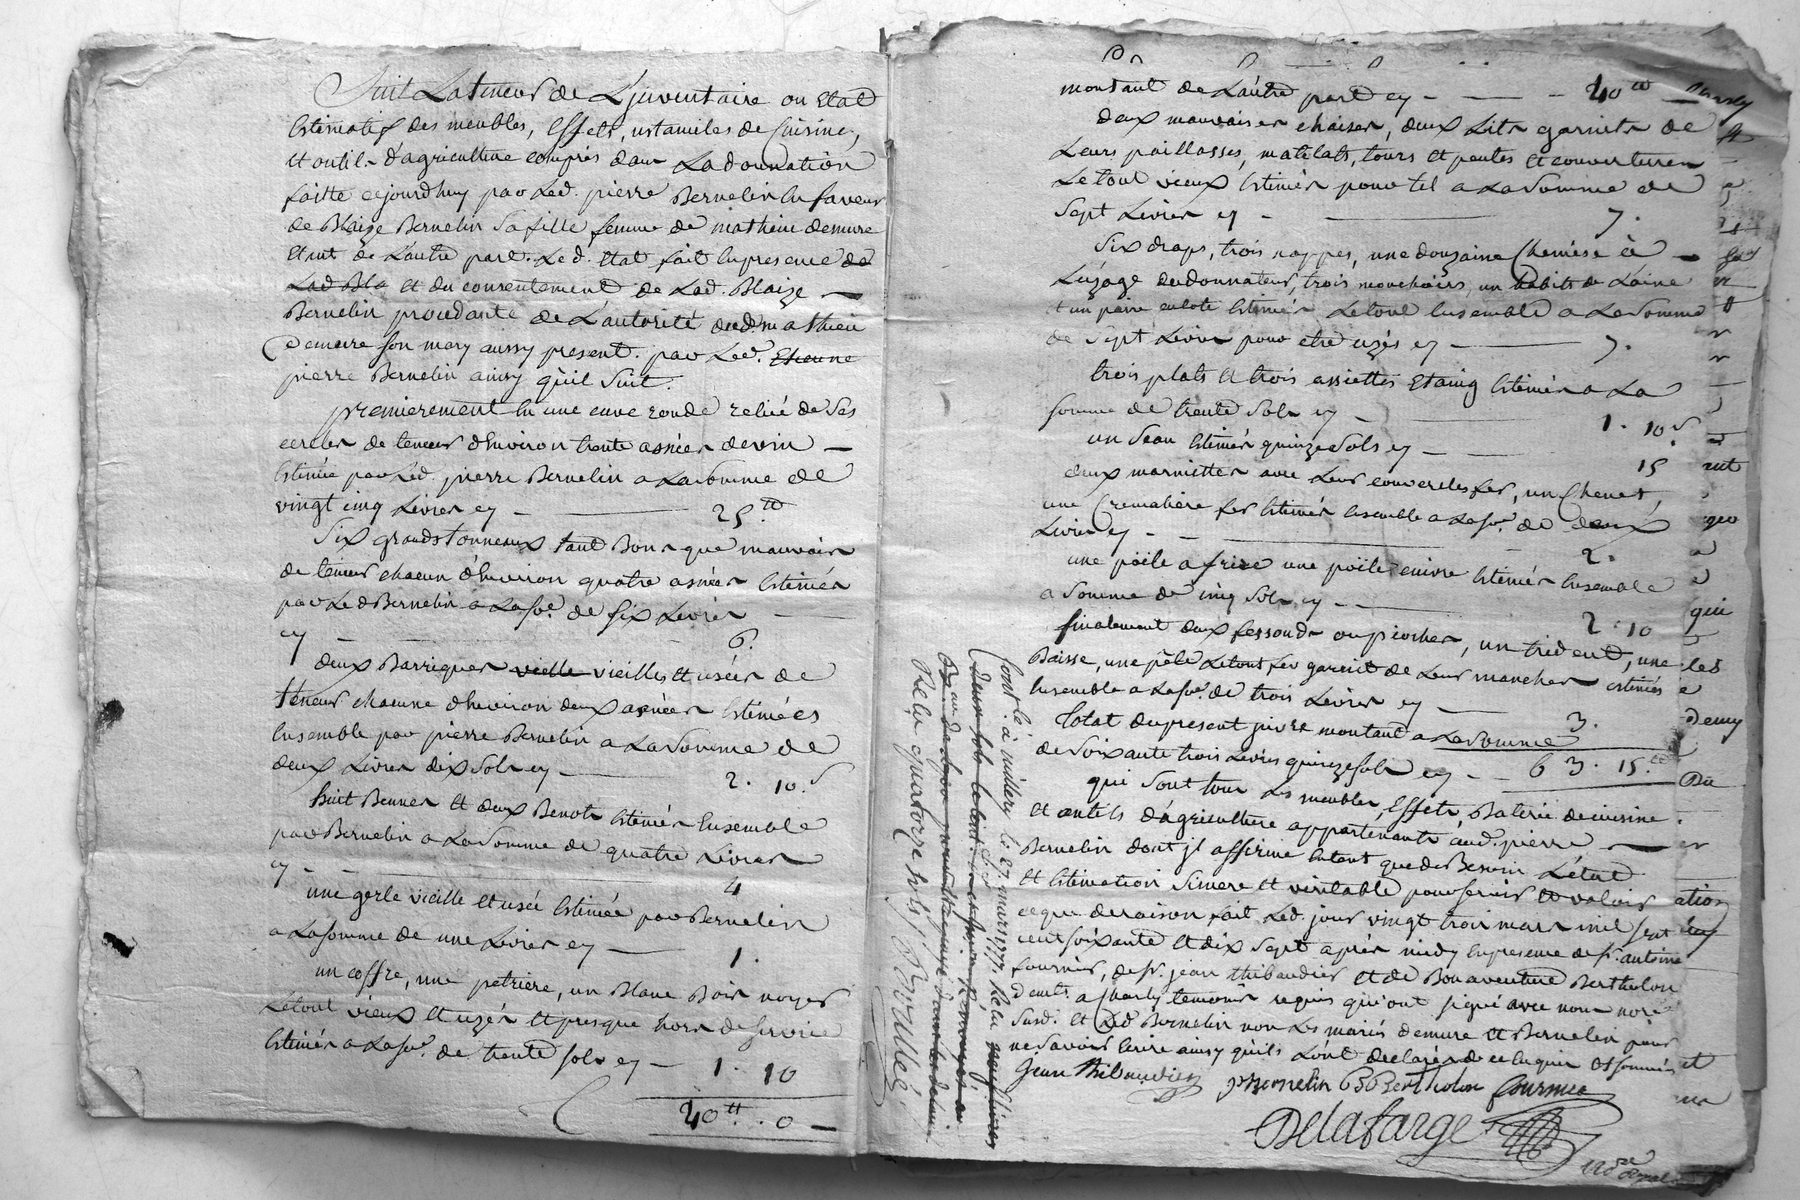 Suit La teneur de L'jnventaire ou Etat
Estimatif des meubles, Effets, ustanciles de Cuisine,
et outils d'agriculture compris dans La donnation
faitte cejourdhuy par Led. pierre Bernelin En faveur
de Blaize Bernelin Sa fille femme de mathieu demure
Etant de L'autre part. Led. Etat fait En presence de
Lad Bla et du consentement de Lad. Blaize
Bernelin procedante de L'autorité dud. mathieu
Demure son mary aussy present. par Led. Etienne
pierre Bernelin ainsy qu'il Suit.
premierement En une cuve ronde reliée de Ses
cercles de teneur d'Environ trente asnées de vin
Estimée par Led. pierre Bernelin a La Somme de
vingt cinq Livres cy 25.tt
Six grands tonneaux tant Bons que mauvais
de teneur chacun d'Environ quatre asnées Estimés
par Led Bernelin a La So.e de six Livres
cy 6.
deux Barriques vieille vieilles et usées de
teneur chacune d'Environ deux asnées Estimées
Ensemble par pierre Bernelin a La Somme de
deux Livres dix Sols cy 2. 10.s
huit Bennes et deux Benots Estimés Ensemble
par Bernelin a La Somme de quatre Livres
cy 4
une gerle vieille et usée Estimée par Bernelin
a La somme de une Livre cy 1.
un coffre, une petriere, un Blanc Bois noyer
Le tout vieux et uzés et presque hors de service
Estimés a La So.e de trente sols cy 1. 10
40tt. 0
montant de L'autre part cy 40tt
deux mauvaises chaises, deux Lits garnits de
Leurs paillasses, matelats, tours et pentes et couvertures
Le tout vieux Estimés pour tel a La Somme de
Sept Livres cy 7.
Six draps, trois nappes, une douzaine Chemise à
L'uzage du donnateur, trois mouchoirs, un habits de Laine
et un paire culote Estimés Le tout Ensemble a La Somme
de Sept Livres pour etre uzés cy 7.
trois plats et trois assiettes Etaing Estimés a La
somme de trente Sols cy 1. 10.s
un Seau Estimés quinze Sols cy 15
deux marmittes avec Leurs couvercles fer, un Chenet,
une Cremaliere fer Estimés Ensemble a La So.e de deux
Livres cy 2.
une poële a frire une poële cuivre Estimés Ensemble
a Somme de cinq Sols cy 2. 10
finalement deux fessouds ou pioches, un trident, une
Baisse, une pêle Le tout fer garnit de Leurs manches estimés
Ensemble a La So.e de trois Livres cy 3.
Total du present jnvre montant a La Somme
de Soixante trois Livres quinze Sols cy 63. 15.
qui Sont tous Les meubles, Effets, Baterie de cuisine
et outils d'agriculture appartenants aud. pierre
Bernelin dont jl affirme Entant que de Besoin L'état
et Estimation Sincere et veritable pour servir et valoir
ce que de raison fait Led. jour vingt trois mars mil sept
cent soixante et dix Sept après midy En presence de sr. antoine
fournier, de sr. jean thibaudier et de Bonaventure Bertholon
demts. a Charly temoins requis qui ont signé avec nous nore
Susd. et Led Bernelin non Les mariés demure et Bernelin pour
ne Savoir Ecrire ainsy qu'ils L'ont declarés de ce Enquis et sommés
Jean Thibaudier pbernelin B Bertholon fournier
Delafarge
nore Royal
Cont.lé à millery le 27. mars 1777. Reçu
Reçu quatorze sols